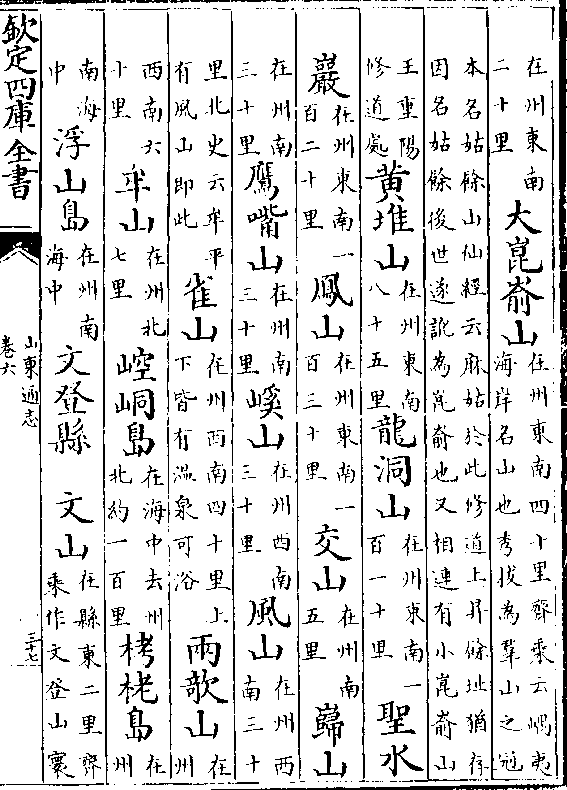 在州東南二十里大崑嵛山在州東南四十里齊乘云嵎夷海岸名山也秀拔為羣山之冠
本名姑餘山仙經云麻姑於此修道上昇餘址猶存因名姑餘後世遂訛為崑嵛也又相連有小崑嵛山
王重陽修道處黃堆山在州東南八十五里龍洞山在州東南一百一十里聖水
巖在州東南一百二十里鳳山在州東南一百三十里交山在州南五里巋山
在州南三十里鷹嘴山在州南三十里嵠山在州西南三十里風山在州西南三十
里北史云牟平有風山即此雀山在州西南四十里上下皆有溫泉可浴兩歌山在州
西南六十里牟山在州北七里崆峒島在海中去州北約一百里栲栳島在州
南海中浮山島在州南海中文登縣 文山在縣東二里齊乘作文登山寰
欽定四庫全書
山東通志
卷六
三十七